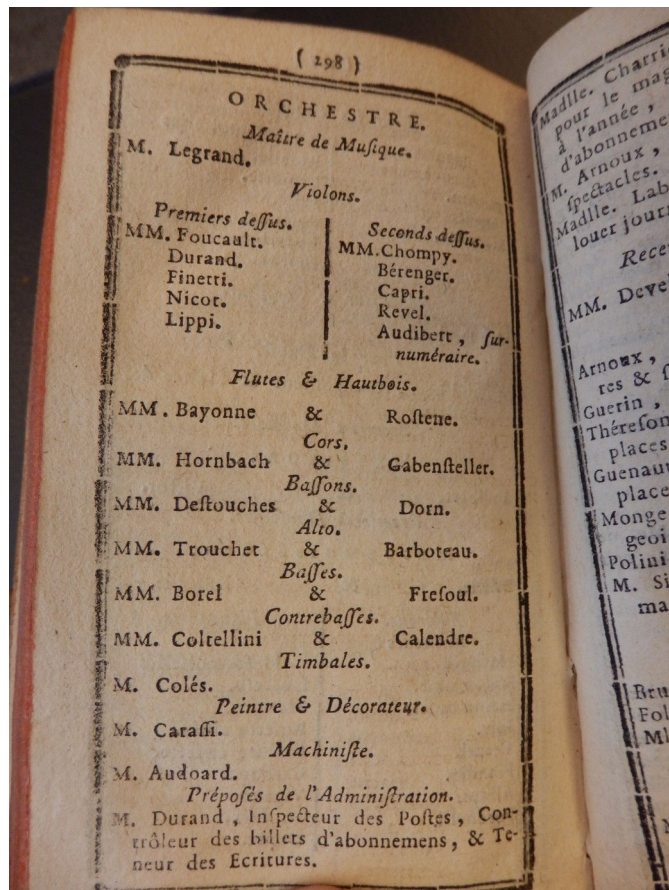 ( 298 )
ORCHESTRE.
Maître de Muſique.
M. Legrand.
Violons.
Premiers deſſus.
MM. Foucault.
Durand.
Finetti.
Nicot.
Lippi.
Seconds deſſus.
MM. Chompy.
Bérenger.
Capri.
Revel.
Audibert, ſur-
numéraire.
Flutes & Hautbois.
MM. Bayonne & Roſtene.
Cors.
MM. Hornbach & Gabenſteller.
Baſſons.
MM. Deſtouches & Dorn.
Alto.
MM. Trouchet & Barboteau.
Baſſes.
MM. Borel & Freſoul.
Contrebaſſes.
MM. Coltellini & Calendre.
Timbales.
M. Colés.
Peintre & Décorateur.
M. Caraſſi.
Machiniſte.
M. Audoard.
Prépoſés de l'Adminiſtration.
M. Durand, Inſpecteur des Poſtes, Con-
trôleur des billets d'abonnemens, & Te-
neur des Ecritures.
Madlle. Charri
pour le mag
à l'année,
d'abonneme
M. Arnoux,
ſpectacles.
Madlle. Lab
louer journ
Rece
MM. Deve
Arnoux,
res & ſ
Guerin,
Théreſon
places
Guenau
place
Monge
geoi
Polini
M. Si
ma
Bru
Fol
Ml